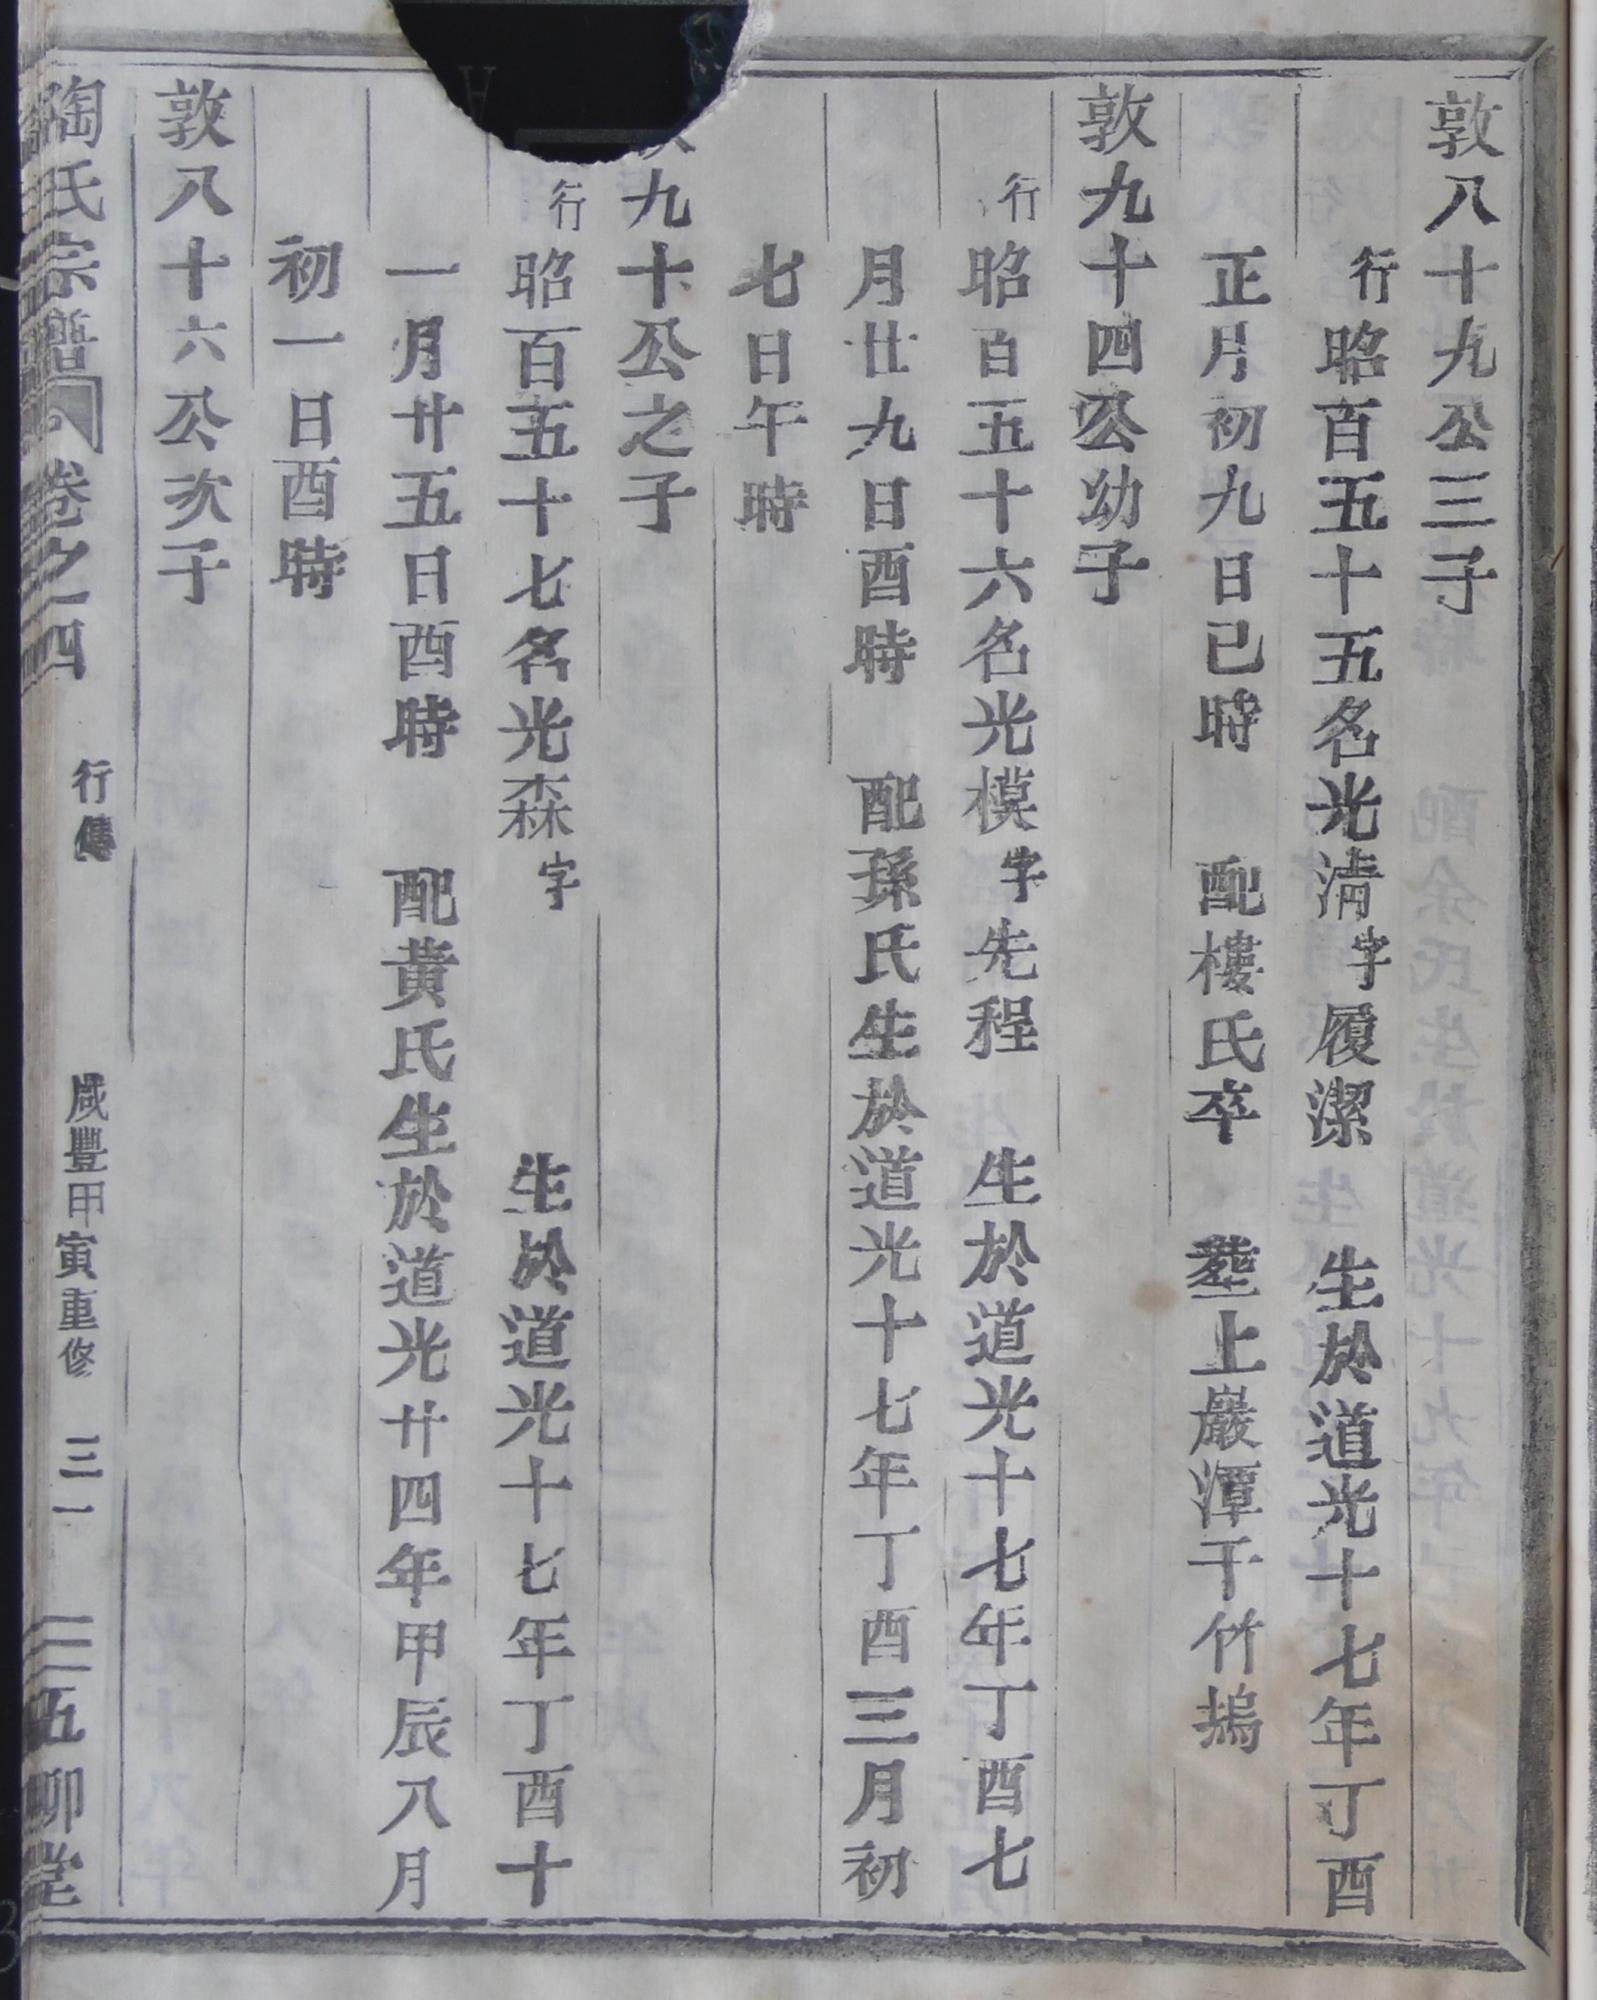 敦八十九公三子
行昭百五十五名光淸字履潔 生於道光十七年丁酉
正月初九日巳時 配樓氏卒 塟上巖潭干竹塢
敦九十四公幼子
行昭百五十六名光模字先程 生於道光十七年丁酉七
月廿九日酉時 配孫氏生於道光十七年丁酉三月初
七日午時
九十公之子
行昭百五十七名光森字 生於道光十七年丁酉十
一月廿五日酉時 配黄氏生於道光廿四年甲辰八月
初一日酉時
敦八十六公次子
陶氏宗譜 卷之四 行傳 咸豐甲寅重修 三一 五柳堂